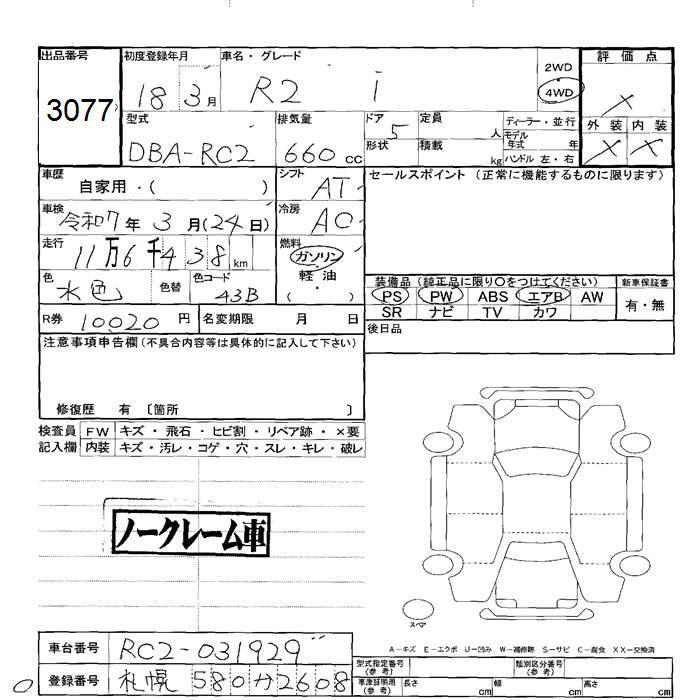 出品番号
3077
初度登録年月
18 3月
車名・グレード
R2 i
2WD
4WD
評価点
×
外装 内装
× ×
型式
DBA-RC2
排気量
660 cc
ドア 5
形状
定員 人
積載 kg
ディーラー・並行
モデル年式 年
ハンドル 左・右
車歴
自家用・( )
シフト
AT
車検
令和7年 3月(24日)
冷房
AC
走行
11万6千438 km
燃料
ガソリン・軽油・( )
色
水色
色替
色コード
43B
R券 10020 円
名変期限 月 日
セールスポイント (正常に機能するものに限ります)
装備品 (純正品に限り○をつけてください)
PS PW ABS エアB AW
SR ナビ TV カワ
新車保証書
有・無
後日品
注意事項申告欄(不具合内容等は具体的に記入して下さい)
修復歴 有 〔箇所 〕
検査員記入欄
FW キズ・飛石・ヒビ割・リペア跡・×要
内装 キズ・汚レ・コゲ・穴・スレ・キレ・破レ
ノークレーム車
スペア
A-キズ E-エクボ U-凹み W-補修跡 S-サビ C-腐食 XX-交換済
車台番号 RC2-031929
登録番号 札幌 580 2608
型式指定番号(参考)
類別区分番号(参考)
車庫証明用(参考) 長さ cm 幅 cm 高さ cm